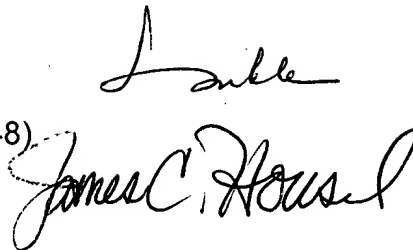 8) James C. Housel